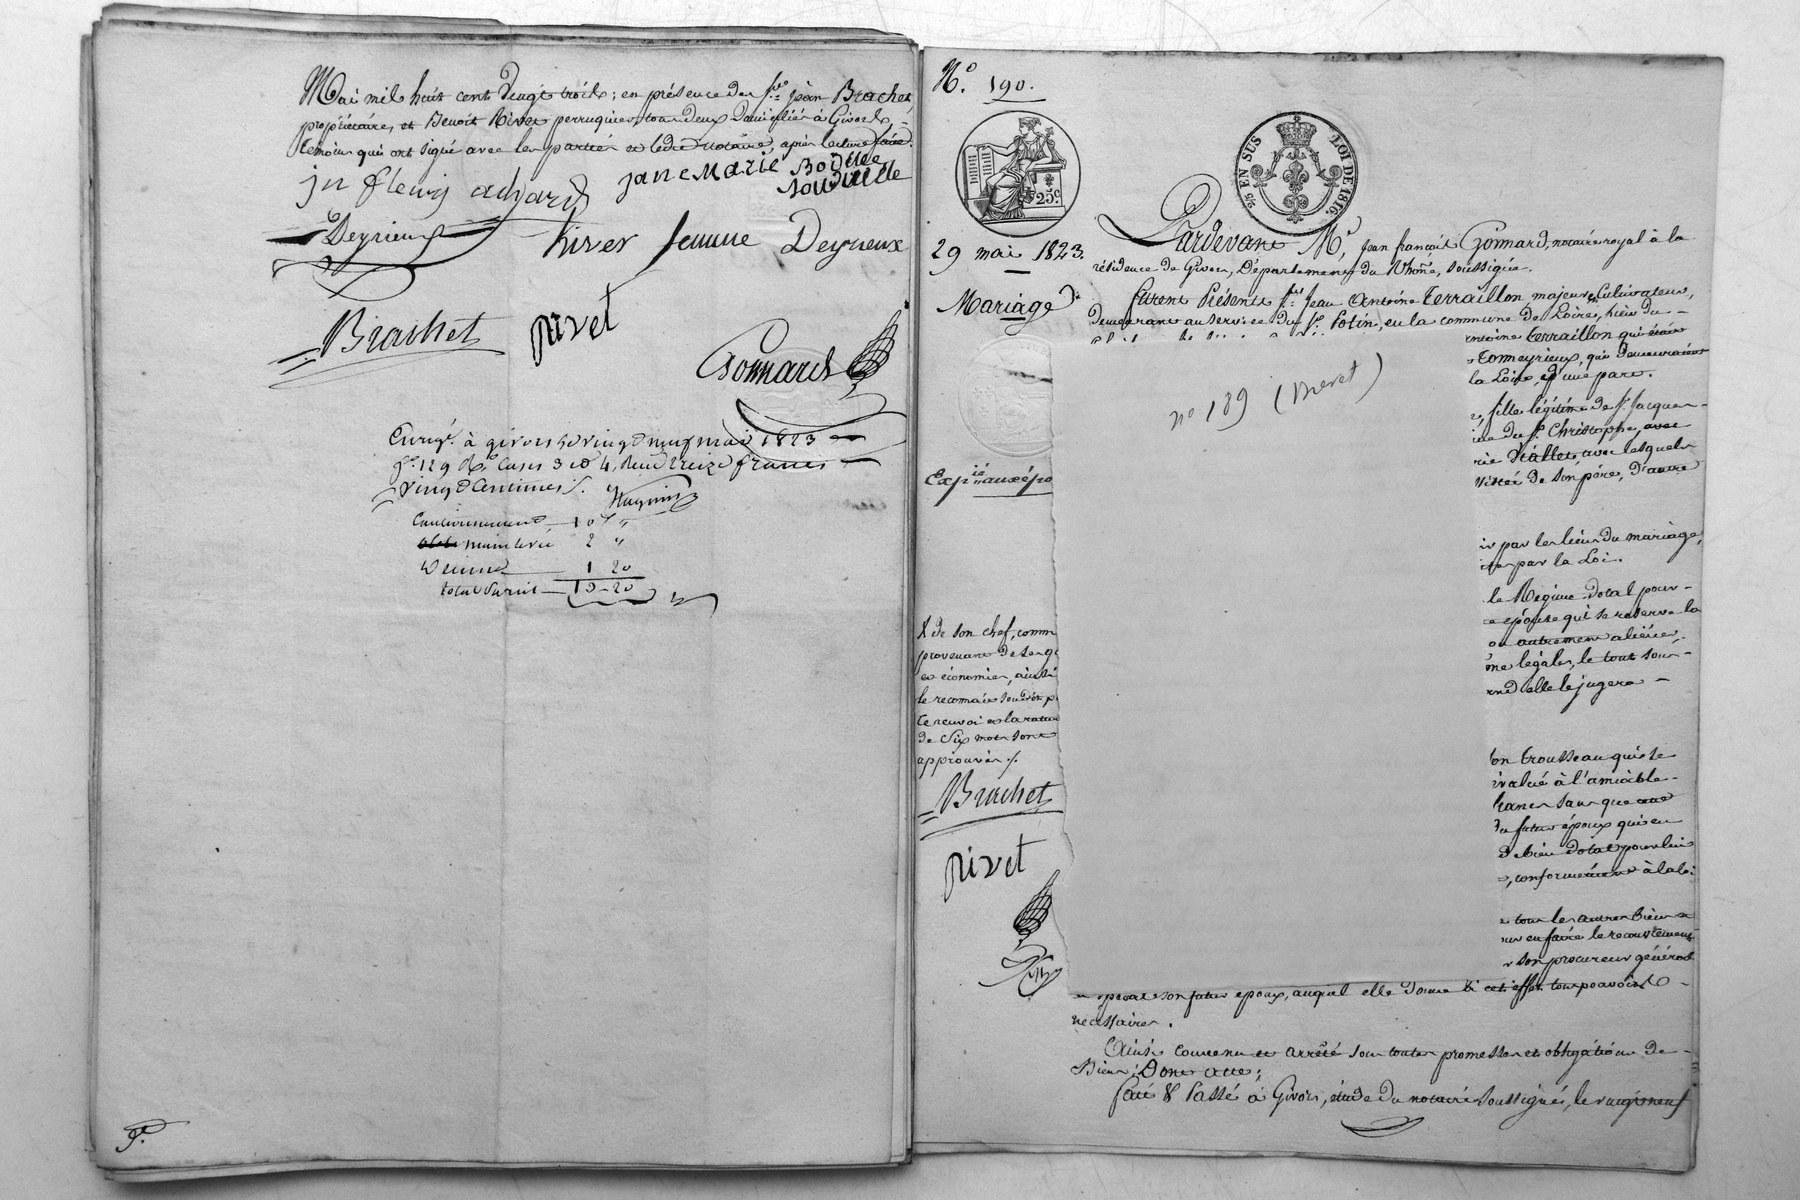 Mai mil huit cent vingt trois; en présence des Srs jean Brachet,
propriétaire, et Benoit Rivet perruquier, tous deux Domiciliés à Givors
temoins qui ont signé avec les parties et ledit notaire, après lecture faite.
jn fleury achard jane Marie Boidlle
Deyrieux hiver femme Deyrieux
Brachet pivet
Gonnard
Enregt. à givors le vingt neuf mai 1823
fo. 129 Ro. Cases 3 et 4, Reçu treize francs
vingt Centimes ./.
Cautionnement 10 "
main levée 2 "
Decime 1 20
total Parcil 13-20
No. 190.
25 EN SUS LOI DE 1816.
25c
29 mai 1823.
Mariage
Pardevant Me. Jean françois Gonnard, notaire royal à la
résidence de Givors, Département du Rhône, soussigné.
furent Présents Sr. Jean Antoine Terraillon, majeur, Cultivateur,
Demeurant au service du Sr. Potin, en la commune de Loire, fils du
ntoine Terraillon qui était
Tonneyrieux, qui Demeuraient
la Loire, d'une part.
no 189 (Brevet)
fille légitime de Sr. Jacques
de St. Christophe, avec
rie Viallet, avec lesquels
sistée de son père, d'autre
Exp. aux épo
ir par les liens du mariage,
par la Loi.
le Régime Dotal pour
épouse qui se reserve la
ou autrement aliéner,
me légales, le tout sous
and elle le jugera
& de son chef, comm
provenant de ses g
et économies, ainsi
le reconnait
ce renvoi et la ratur
de Six mots sont
approuvés ./.
Brachet
pivet
on trousseau qui se
évalué à l'amiable
francs sans que
du futur époux qui en
de bien dotal pour lui
, conformément à la loi
tous les autres biens
en faire le recouvrement
son procureur général
et spécial son futur epoux, auquel elle donne à cet effet tous pouvoirs
necessaires.
Ainsi convenu et arrêté sous toutes promesses et obligations de
Biens; Dont Acte;
fait & Passé à Givors, étude du notaire soussigné, le vingt neuf